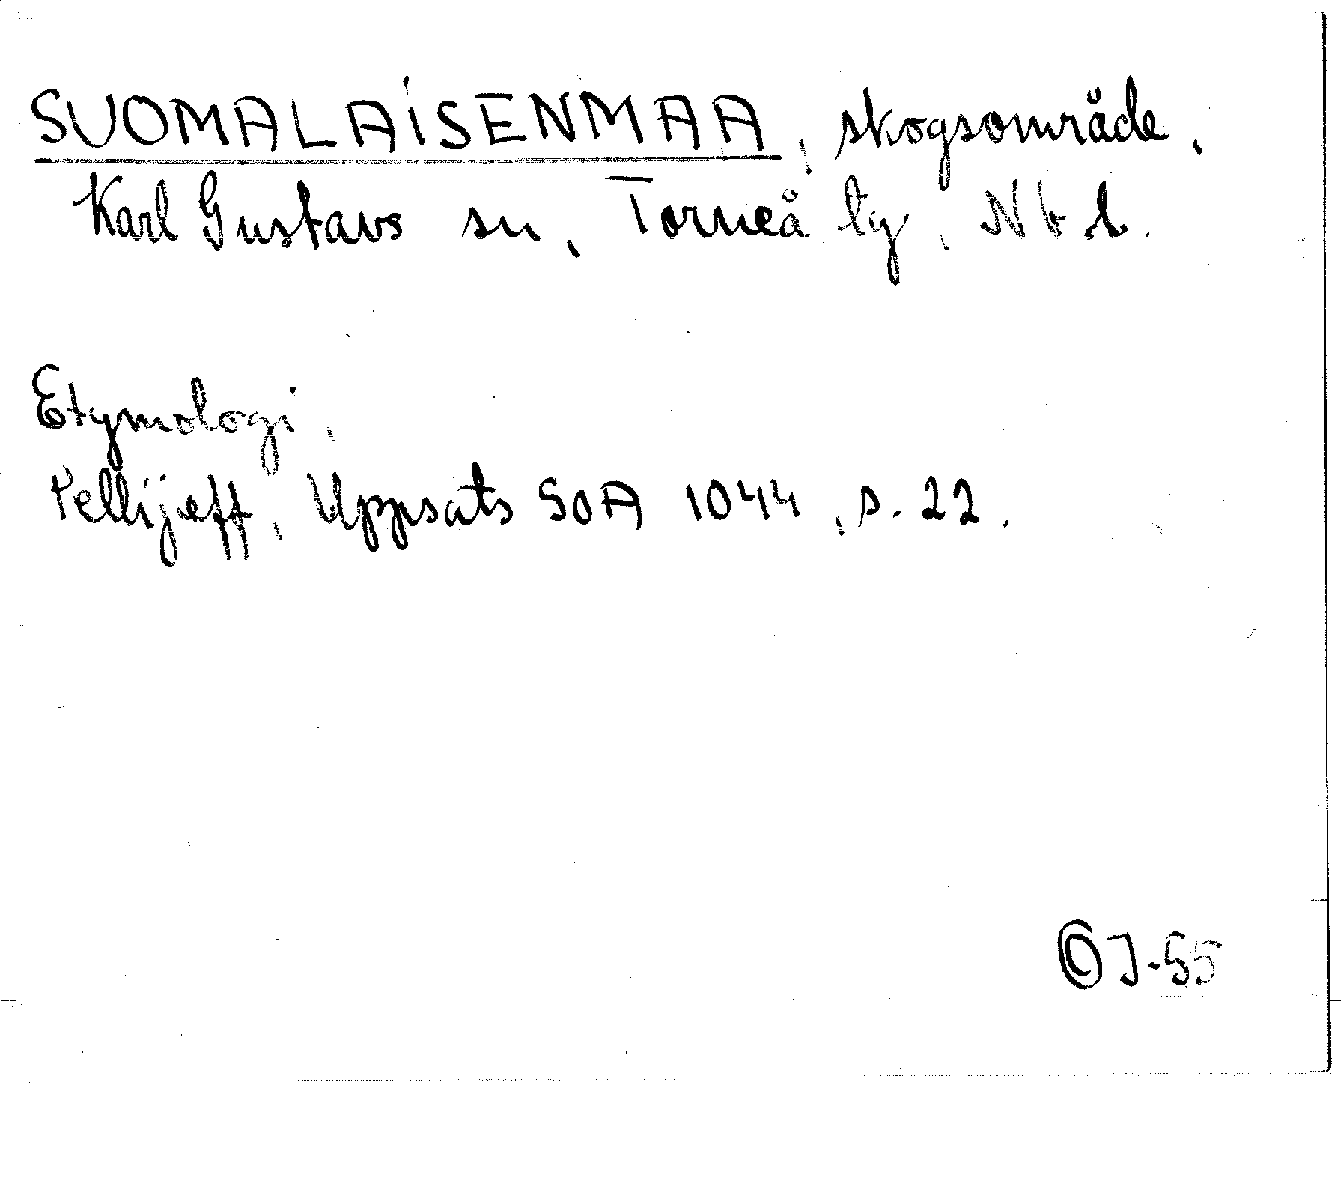 SUOMALAISENMAA, skogsområde,
Karl Gustavs sn, Torneå tg, Nbl.
Etymologi,
Pellijeff, Uppsats SOA 1044, s. 22.
©J-55